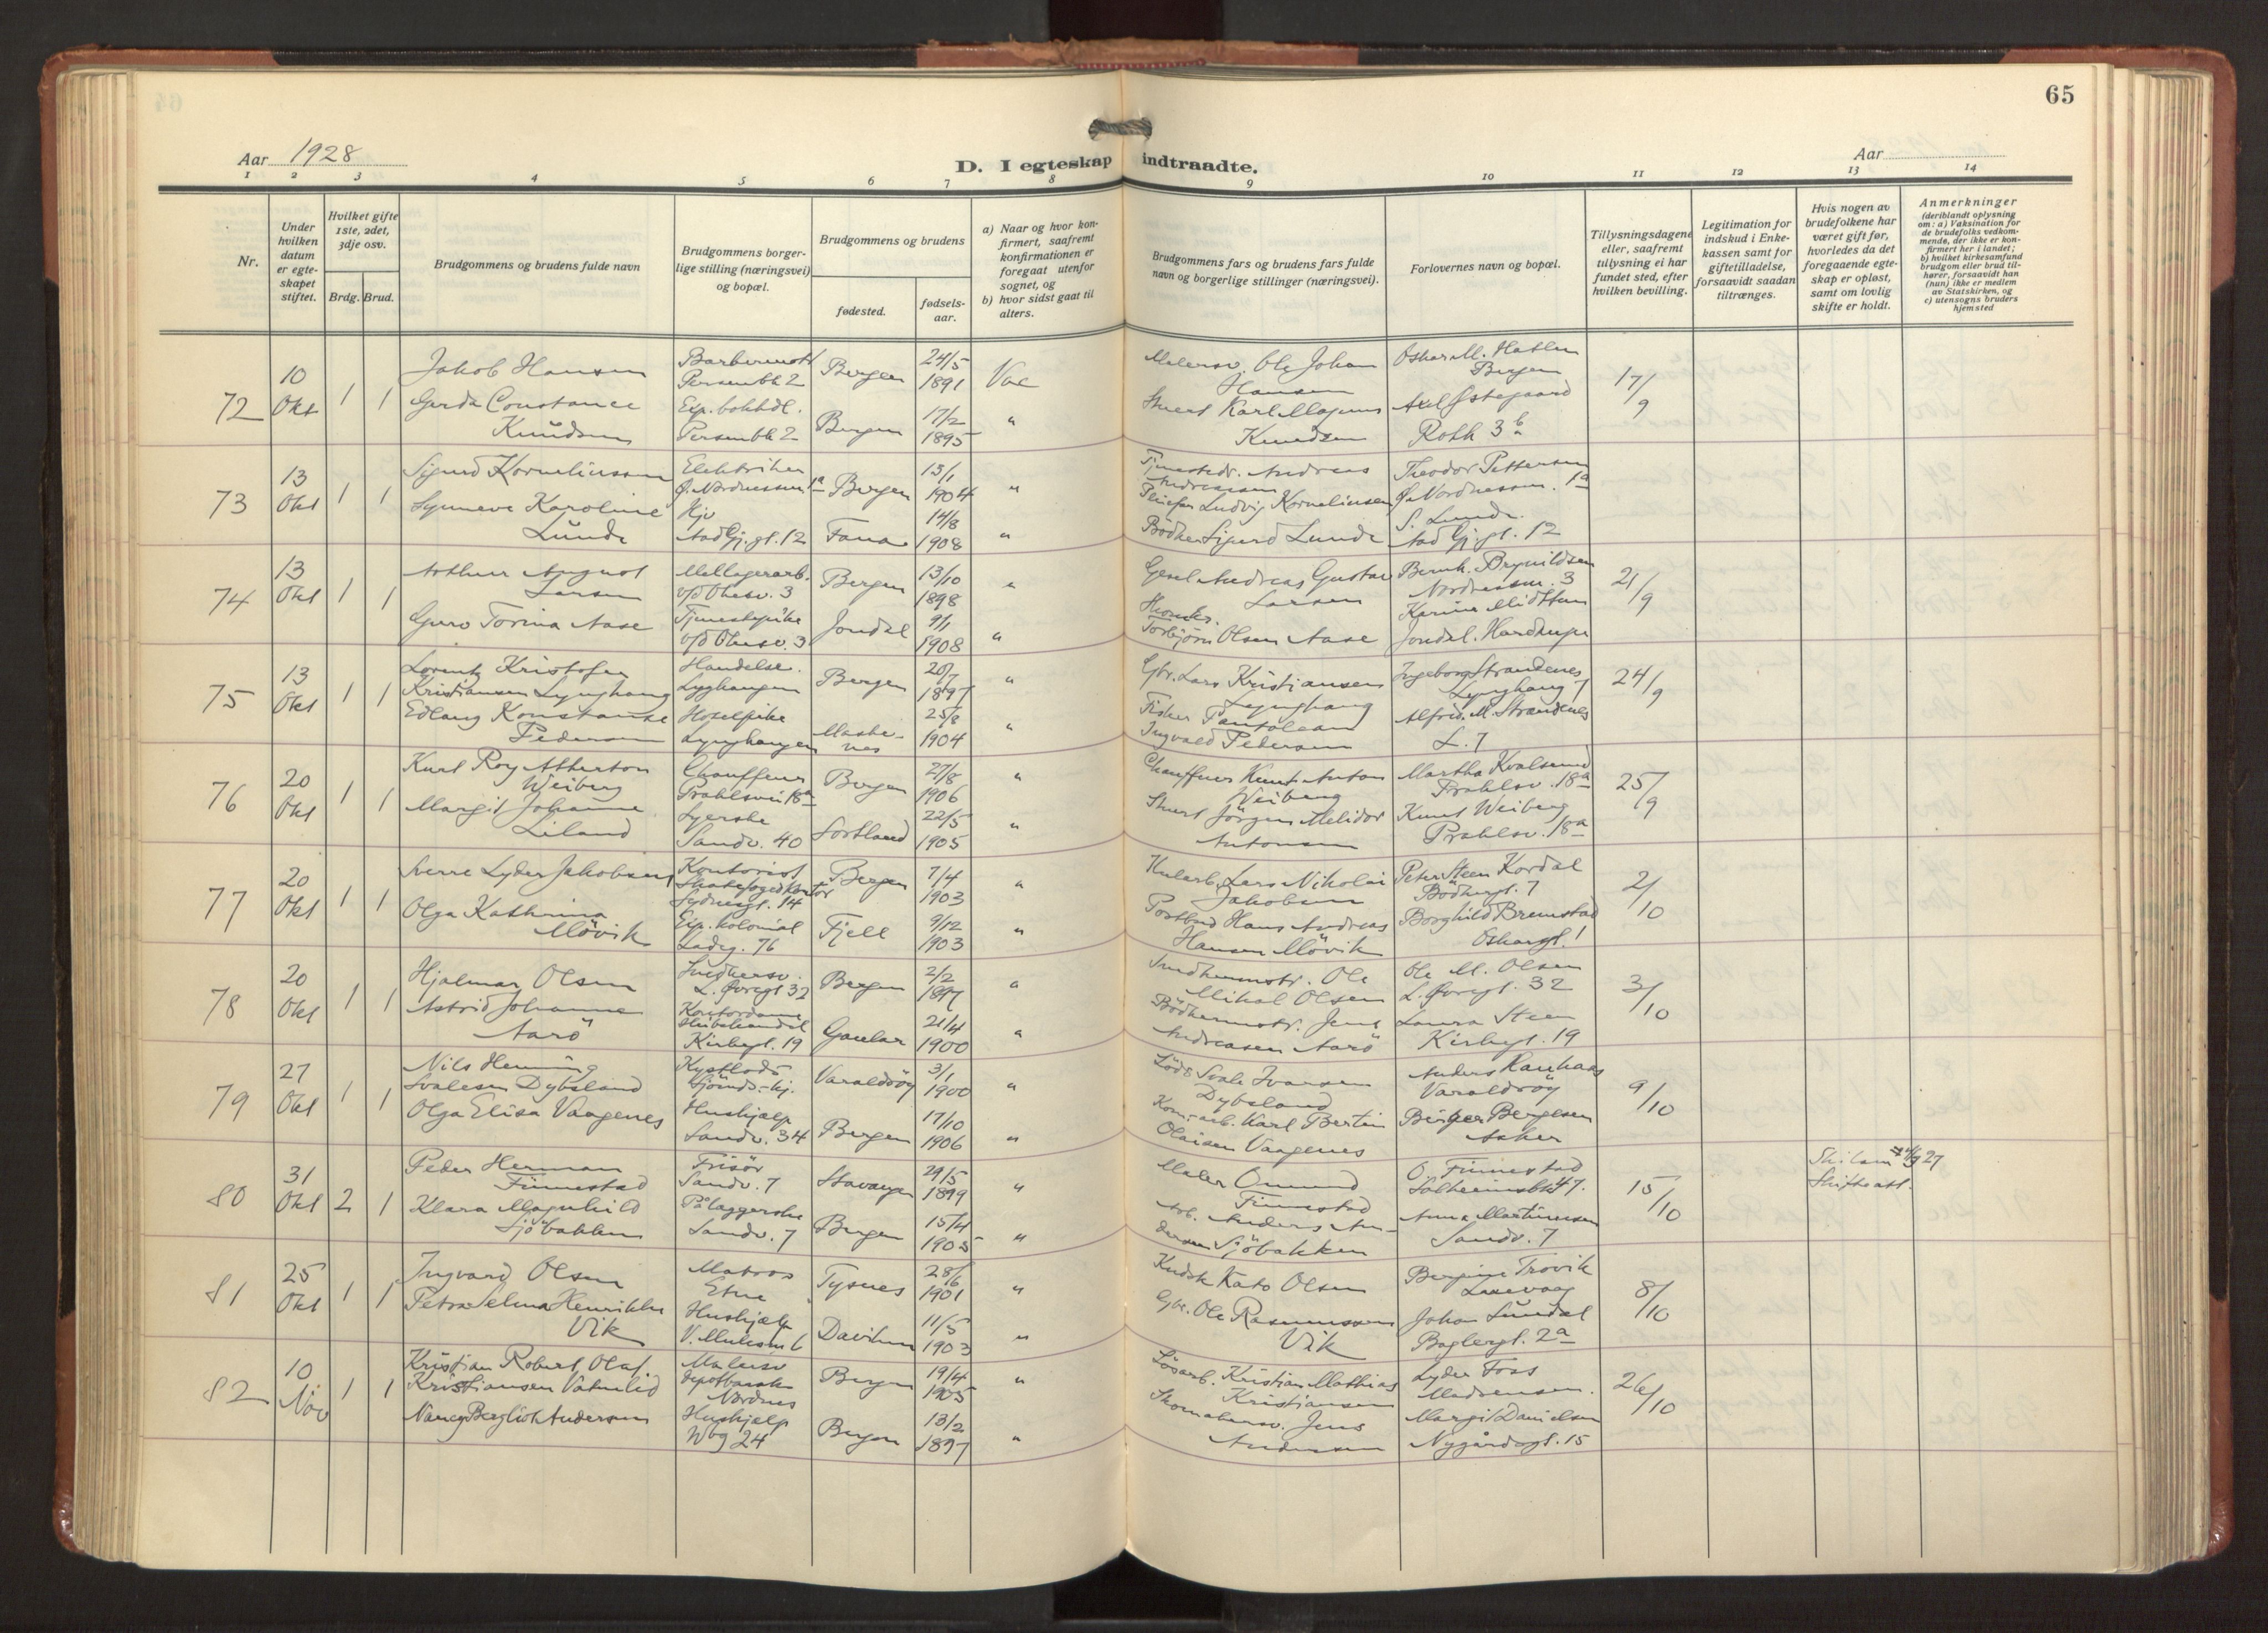 65
Aar 1928
D. I egteskap indtraadte.
Aar
1 2 3 4 5 6 7 8 9 10 11 12 13 14
Nr.
Under hvilken datum er egte-skapet stiftet.
Hvilket gifte 1ste, 2det, 3dje osv.
Brdg. Brud.
Brudgommens og brudens fulde navn
Brudgommens borger-lige stilling (næringsvei) og bopæl.
Brudgommens og brudens
fødested.
fødsels-aar.
a) Naar og hvor kon-firmert, saafremt konfirmationen er foregaat utenfor sognet, og
b) hvor sidst gaat til alters.
Brudgommens fars og brudens fars fulde navn og borgerlige stillinger (næringsvei).
Forlovernes navn og bopæl.
Tillysningsdagene eller, saafremt tillysning ei har fundet sted, efter hvilken bevilling.
Legitimation for indskud i Enke-kassen samt for giftetilladelse, forsaavidt saadan tiltrænges.
Hvis nogen av brudefolkene har været gift før, hvorledes da det foregaaende egte-skap er opløst, samt om lovlig skifte er holdt.
Anmerkninger
(deriblandt oplysning om: a) Vaksination for de brudefolks vedkom-mende, der ikke er kon-firmert her i landet; b) hvilket kirkesamfund brudgom eller brud til-hører, forsaavidt han (hun) ikke er medlem av Statskirken, og c) utensogns bruders hjemsted
72 10 Okt 1 1
Jakob Hansen
Persenbk 2
Bergen 24/5 1891
Ole Johan Hansen
Oskar M. Hatlen Bergen
17/9
Gerda Constance Knudsen
Exp. bokhdl. Persenbk 2
Bergen 17/2 1895 "
Stuert Karl Magnus Knudsen
Axel Østegaard
Roth 3 b
73 13 Okt 1 1
Sigurd Korneliussen
Elektriker
Ø. Nordnessm 1a
Bergen 13/1 1904 "
Andreas Andreassen
Ludvig Korneliussen
Theodor Pettersen
Ø. Nordnessm. 1a
Synneve Karoline Lunde
Hjv
Aad Gj. gt. 12
Fana 14/8 1908 "
Bødker Sigurd Lunde
S. Lunde
Aad Gj. gt. 12
74 13 Okt 1 1
Arthur August Larsen
Bergen 13/10 1898 "
Andreas Gustav Larsen
Bernh. Brynildsen
Nordnessm. 3
21/9
Guro Torina Aase
Tjenestepike
Jondal 9/1 1908 "
Torbjørn Olsen Aase
Karina Midttun
Jondal. Hardanger
75 13 Okt 1 1
Lorentz Kristofer Kristiansen Lynghaug
Bergen 20/7 1897 "
Gbr. Lars Kristiansen Lynghaug
Ingeborg Strandenes
Lynghaug 7
24/9
Edlaug Konstanse Pedersen
25/8 1904 "
Fisker Pantoleon Ingvald Pedersen
Alfred M. Strandenes
L. 7
76 20 Okt 1 1
Kurt Roy Atherton Weiberg
Chauffeur
Prahlsvei 18a
Bergen 27/8 1906 "
Chauffeur Knut Anton Weiberg
Martha Kvalsund
Prahlsv. 18a
25/9
Margit Johanne Liland
Syerske
Sandv. 40
Sortland 22/5 1905 "
Stuert Jørgen Melidor Antonsen
Knut Weiberg
Prahlsv. 18a
77 20 Okt 1 1
Sverre Lyder Jakobsen
Kontorist
Sydnesgt. 14
Bergen 7/4 1903 "
Kularb. Lars Nikolai Jakobsen
Peter Steen Kordal
Bødkergt. 7
2/10
Olga Kathrina Møvik
Exp. kolonial
Ladeg. 76
Fjell 9/12 1903 "
Postbud Hans Andreas Hansen Møvik
Borghild Bremstad
Oskarsgt. 1
78 20 Okt 1 1
Hjalmar Olsen
Snedkersv.
L. Øvregt 32
Bergen 2/2 1897 "
Snedkermstr. Ole Mikal Olsen
Ole M. Olsen
L. Øvregt. 32
3/10
Astrid Johanne Aarø
Kontordame
Kirkegt. 19
Gaular 21/4 1900 "
Bødkermstr. Jens Andreasen Aarø
Laura Steen
Kirkegt. 19
79 27 Okt 1 1
Nils Henning Svalesen Dybsland
Kystlods
Varaldsøy 3/1 1900 "
Lods Svale Ivarsen Dybsland
Anders Kanhaas
Varaldsøy
9/10
Olga Elisa Vaagenes
Hushjælp
Sandv. 34
Bergen 17/10 1906 "
Kom.-arb. Karl Bertin Olaisen Vaagenes
Birger Bergesen
Asker
80 31 Okt 2 1
Peder Herman Finnestad
Frisør
Sandv. 7
Stavanger 29/5 1899 "
Maler Omund Finnestad
O. Finnestad
Solheimsbk 47.
15/10
Skifteatt.
Klara Magnhild Sjøbakken
Pålæggerske
Sandv. 7
Bergen 15/4 1905 "
Arb. Anders Andersen Sjøbakken
Anna Martinussen
Sandv. 7
81 25 Okt 1 1
Ingvard Olsen
Matros
Etne
Tysnes 28/6 1901 "
Kusk Kato Olsen
Bergine Trovik
Laxevaag
8/10
Petra Selma Henrikke Vik
Hushjælp
Daviken 11/5 1903 "
Gbr. Ole Rasmussen Vik
Johan Lundal
Baglergt. 2a
82 10 Nov 1 1
Kristian Robert Olaf Kristiansen Vatnelid
Malersv
Nordnes
Bergen 19/4 1905 "
Løsarb. Kristian Mathias Kristiansen
Lyder Foss
26/10
Nancy Bergliot Andersen
Hushjælp
Wbg 24
Bergen 13/2 1897 "
Skomakersv. Jens Andersen
Margit Danielsen
Nygårdsgt. 15